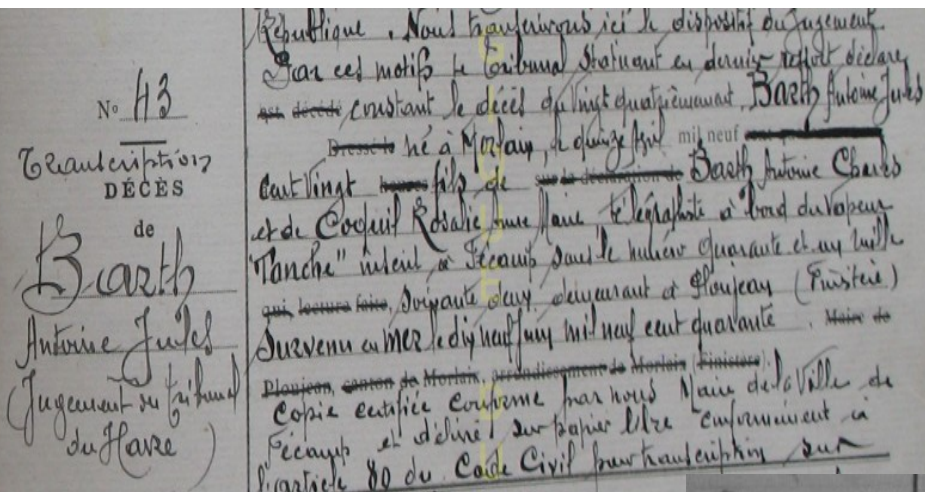 N° 43
Transcription
DÉCÈS
de
Barth
Antoine Jules
(Jugement du Tribunal
du Havre)
République. Nous transcrivons ici le dispositif du Jugement
Par ces motifs le Tribunal statuant en dernier ressort déclare
est décédé constant le décès du vingt quatrièmement, Barth Antoine Jules
Dressé le né à Morlaix, le quinze mil neuf
cent vingt heures fils de sur la déclaration de Barth Antoine Charles
et de Coquil Rosalie Marie télégraphiste à bord du Vapeur
"Tanche" inscrit à Fécamp sous le numéro quarante et un mille
qui, lecture faite, soixante deux, demeurant à Ploujean (Finistère)
Survenu en MER le dix neuf Juin mil neuf cent quarante. Maire de
Ploujean, canton de Morlaix, arrondissement de Morlaix (Finistère).
Copie certifiée conforme par nous Maire de la Ville de
Fécamp et délivré sur papier libre conformément à
l'article 80 du Code Civil pour transcription sur